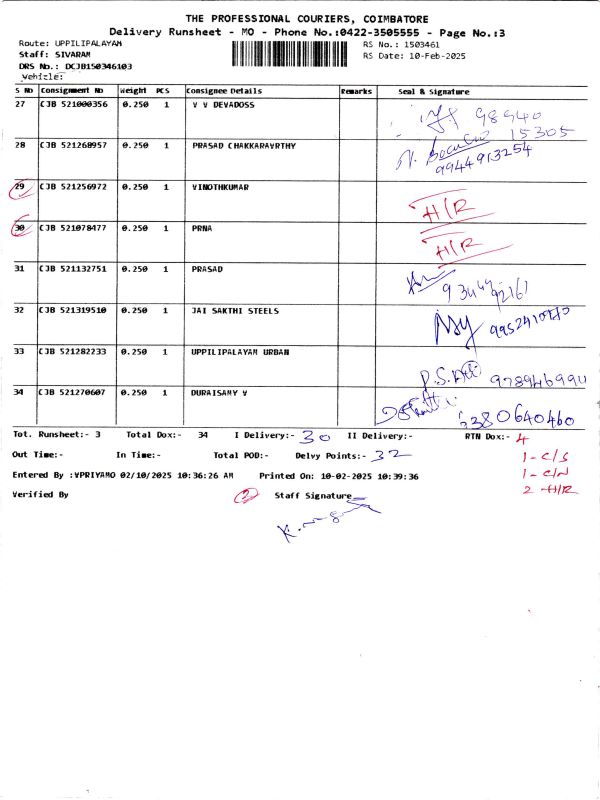 THE PROFESSIONAL COURIERS, COIMBATORE
Delivery Runsheet - MO - Phone No.:0422-3505555 - Page No.:3
Route: UPPILIPALAYAM
RS No.: 1503461
Staff: SIVARAM
RS Date: 10-Feb-2025
DRS No.: DCJB150346103
Vehicle:
S No Consignment No Weight PCS Consignee Details Remarks Seal & Signature
27 CJB 521000356 0.250 1 V V DEVADOSS 98940
15305
28 CJB 521268957 0.250 1 PRASAD CHAKKARAVRTHY
9944913254
29 CJB 521256972 0.250 1 VINOTHKUMAR H/R
30 CJB 521078477 0.250 1 PRNA H/R
31 CJB 521132751 0.250 1 PRASAD
32 CJB 521319510 0.250 1 JAI SAKTHI STEELS
33 CJB 521282233 0.250 1 UPPILIPALAYAM URBAN
34 CJB 521270607 0.250 1 DURAISAMY V 6380640460
Tot. Runsheet:- 3 Total Dox:- 34 I Delivery:- 30 II Delivery:- RTN Dox:- 4
Out Time:- In Time:- Total POD:- Delvy Points:- 32 1 - C/S
Entered By :VPRIYAMO 02/10/2025 10:36:26 AM Printed On: 10-02-2025 10:39:36 1 - C/N
Verified By 2 Staff Signature 2 - H/R